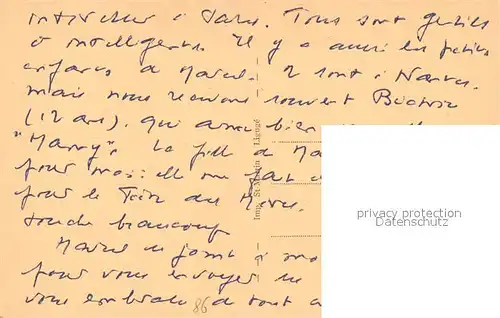 à Paris. Tous sont gentils
& intelligents. Il y a aussi les petits
enfants de Marcel. 2 sont à Nantes.
mais nous recevons souvent Béatrice
(12 ans). qui aime bien
"Mamy". La fille de
pour moi: elle me fait
pour la Fête des Mères.
touche beaucoup
Marcel se joint à moi
pour vous envoyer
vous embrasse de tout
86
Imp. St-Martin Ligugé
privacy protection
Datenschutz